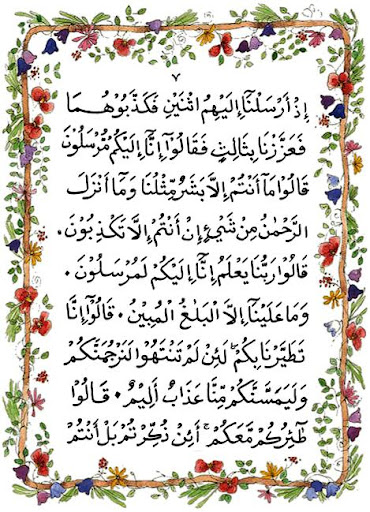 ٧
إِذْ أَرْسَلْنَآ إِلَيْهِمُ اثْنَيْنِ فَكَذَّبُوْهُمَا
فَعَزَّزْنَا بِثَالِثٍ فَقَالُوْٓا إِنَّآ إِلَيْكُمْ مُّرْسَلُوْنَ
قَالُوْا مَآ أَنْتُمْ إِلَّا بَشَرٌ مِّثْلُنَا وَمَآ أَنْزَلَ
الرَّحْمٰنُ مِنْ شَيْءٍ إِنْ أَنْتُمْ إِلَّا تَكْذِبُوْنَ ٠
قَالُوْا رَبُّنَا يَعْلَمُ إِنَّآ إِلَيْكُمْ لَمُرْسَلُوْنَ ٠
وَمَا عَلَيْنَآ إِلَّا الْبَلٰغُ الْمُبِيْنُ ٠ قَالُوْٓا إِنَّا
تَطَيَّرْنَا بِكُمْ ۚ لَئِنْ لَمْ تَنْتَهُوْا لَنَرْجُمَنَّكُمْ
وَلَيَمَسَّنَّكُمْ مِّنَّا عَذَابٌ أَلِيْمٌ ٠ قَالُوْا
طَٰٓئِرُكُمْ مَّعَكُمْ ۚ أَئِنْ ذُكِّرْتُمْ بَلْ أَنْتُمْ